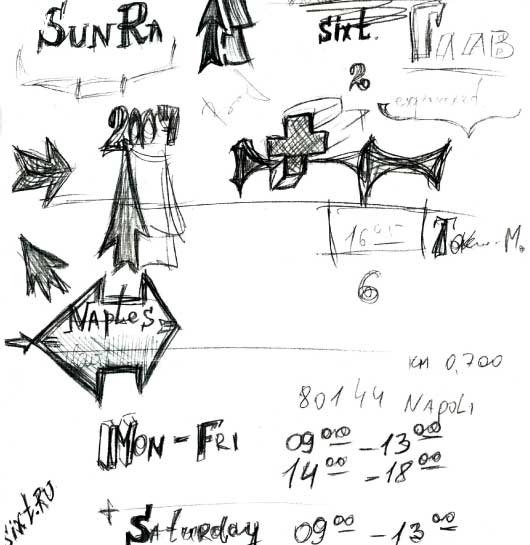 SunRa
sixt.
2
2007
16 05
6
Naples
км 0,700
80144 Napoli
Mon - Fri 09 00 - 13 00
14 00 - 18 00
sixt.RU
Saturday 09 00 - 13 00